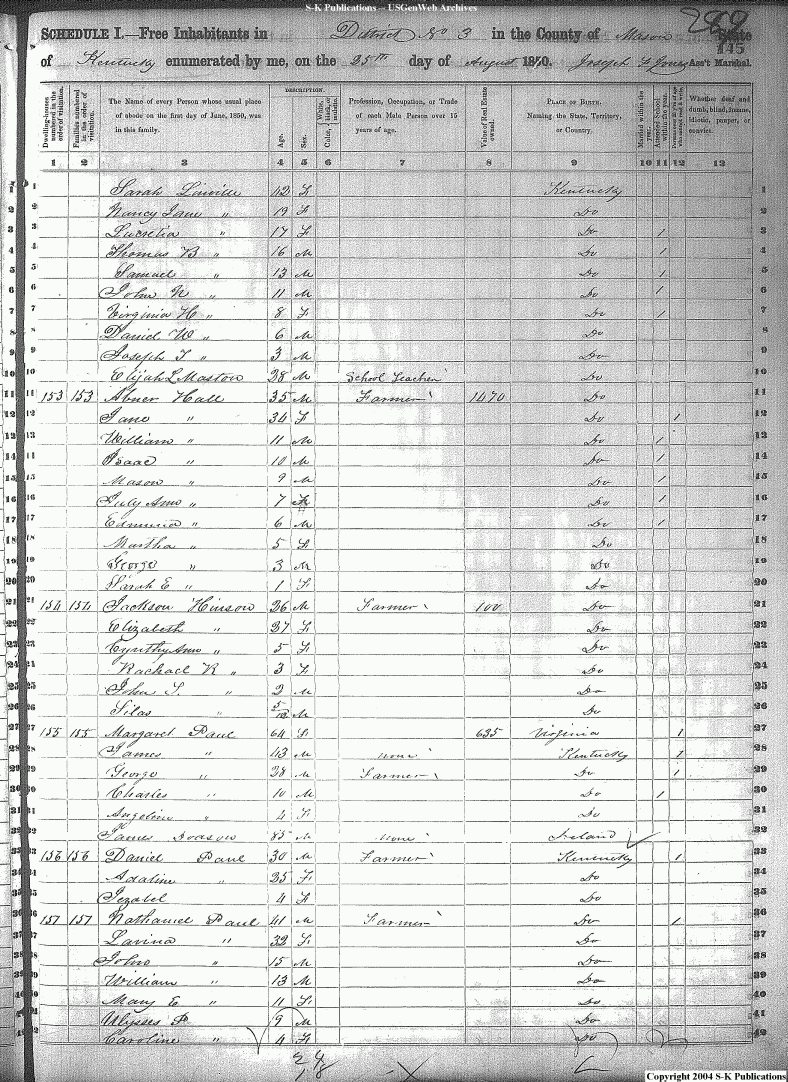 S-K Publications -- USGenWeb Archives
289
145
SCHEDULE I.—Free Inhabitants in District No 3 in the County of Mason State
of Kentucky enumerated by me, on the 25th day of August 1850. Joseph F Jones Ass't Marshal.
Dwelling-houses numbered in the order of visitation.
Families numbered in the order of visitation.
The Name of every Person whose usual place of abode on the first day of June, 1850, was in this family.
DESCRIPTION
Age.
Sex.
Color, White, black, or mulatto.
Profession, Occupation, or Trade of each Male Person over 15 years of age.
Value of Real Estate owned.
PLACE OF BIRTH. Naming the State, Territory, or Country.
Married within the year.
Attended School within the year.
Persons over 20 y'rs of age who cannot read & write.
Whether deaf and dumb, blind, insane, idiotic, pauper, or convict.
1 2 3 4 5 6 7 8 9 10 11 12 13
1 Sarah Linville 42 F Kentucky 1
2 Nancy Jane " 19 F Do 2
3 Lucretia " 17 F Do 1 3
4 Thomas B " 16 M Do 1 4
5 Samuel " 13 M Do 1 5
6 John N " 11 M Do 1 6
7 Virginia H " 8 F Do 1 7
8 Daniel W " 6 M Do 8
9 Joseph T " 3 M Do 9
10 Elijah L Maston 28 M School Teacher Do 10
11 153 153 Abner Hall 35 M Farmer 1470 Do 11
12 Jane " 34 F Do 1 12
13 William " 11 M Do 1 13
14 Isaac " 10 M Do 1 14
15 Mason " 9 M Do 1 15
16 July Ann " 7 F Do 1 16
17 " 6 M Do 1 17
18 Martha " 5 F Do 18
19 George " 3 M Do 19
20 Sarah E " 1 F Do 20
21 154 154 Jackson Hinson 36 M Farmer 100 Do 21
22 Elizabeth " 37 F Do 22
23 Cynthy Ann " 5 F Do 22
24 Rachael R " 3 F Do 24
25 John S. " 2 M Do 25
26 Silas " 5/12 M Do 26
27 155 155 Margaret Paul 64 F 635 Virginia 1 27
28 James " 43 M none Kentucky 1 28
29 George " 28 M Farmer Do 1 29
30 Charles " 10 M Do 1 30
31 Angeline " 4 F Do 31
32 James 85 M none Ireland 32
33 156 156 Daniel Paul 30 M Farmer Kentucky 1 33
34 Adaline " 35 F Do 34
35 Jezabel 4 F Do 35
36 157 157 Nathaniel Paul 41 M Farmer Do 1 36
37 Lavina " 32 F Do 37
38 John " 15 M Do 38
39 William " 13 M Do 39
40 Mary E " 11 F Do 40
41 Ulysses P 9 M Do 41
42 Caroline " 4 F Do 42
Copyright 2004 S-K Publications